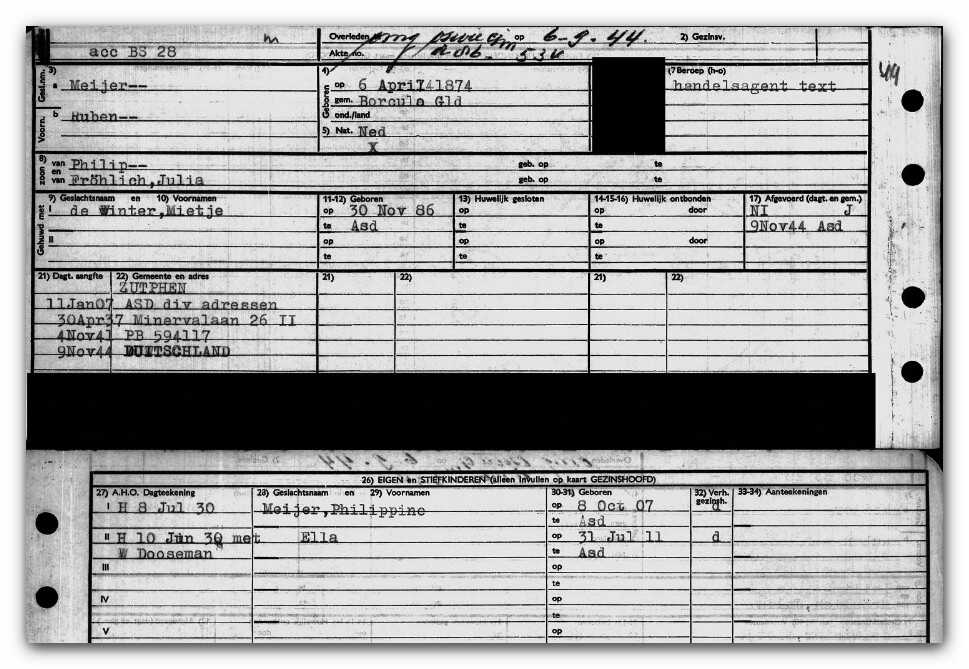 acc BS 28
m
Overleden op 6-9-44.
2) Gezinsv.
Akte no. 534
Gesl.nm. 3) a Meijer--
Voorn. b Ruben--
4) Geboren op 6 April 1874
gem. Borculo Gld
ond./land
5) Nat. Ned
X
(7 Beroep (h-o)
handelsagent text
49
8) zoon van Philip-- geb. op te
en van Fröhlich,Julia geb. op te
Gehuwd met 9) Geslachtsnaam en 10) Voornamen 11-12) Geboren 13) Huwelijk gesloten 14-15-16) Huwelijk ontbonden 17) Afgevoerd (dagt. en gem.)
I de Winter,Mietje op 30 Nov 86 op op door NI J
te Asd te te 9Nov44 Asd
II op op op door
te te te
21) Dagt. aangifte 22) Gemeente en adres 21) 22) 21) 22)
ZUTPHEN
11Jan07 ASD div adressen
30Apr37 Minervalaan 26 II
4Nov41 PB 594117
9Nov44 DUITSCHLAND
26) EIGEN en STIEFKINDEREN (alleen invullen op kaart GEZINSHOOFD)
27) A.H.O. Dagteekening 28) Geslachtsnaam en 29) Voornamen 30-31) Geboren 32) Verh. gezinsh. 33-34) Aanteekeningen
I H 8 Jul 30 Meijer,Philippine op 8 Oct 07 d
te Asd
II H 10 Jun 30 met Ella op 31 Jul 11 d
W Dooseman te Asd
III op
te
IV op
te
V op